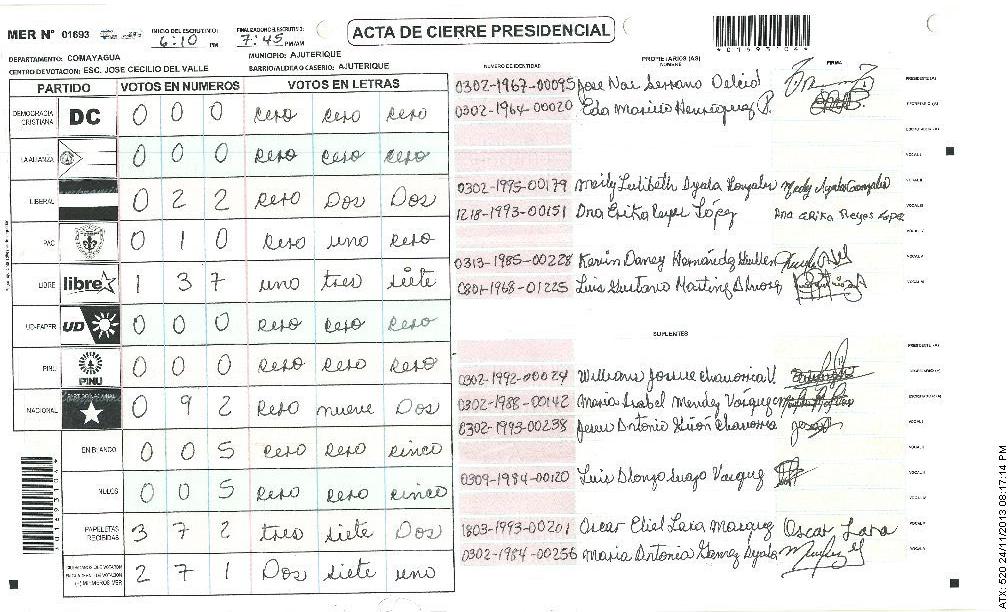 MER N° 01693
INICIO DEL ESCRUTINIO: 6:10 PM
FINALIZACION ESCRUTINIO: 7:45 PM/AM
ACTA DE CIERRE PRESIDENCIAL
*01693104*
DEPARTAMENTO: COMAYAGUA
MUNICIPIO: AJUTERIQUE
CENTRO DE VOTACION: ESC. JOSE CECILIO DEL VALLE
BARRIO/ALDEA O CASERIO: AJUTERIQUE
PARTIDO VOTOS EN NUMEROS VOTOS EN LETRAS
DEMOCRACIA CRISTIANA DC 0 0 0 cero cero cero
LA ALIANZA 0 0 0 cero cero cero
LIBERAL 0 2 2 cero Dos Dos
PAC 0 1 0 cero uno cero
LIBRE libre 1 3 7 uno tres siete
UD-FAPER UD 0 0 0 cero cero cero
PINU PINU 0 0 0 cero cero cero
NACIONAL 0 9 2 cero nueve Dos
EN BLANCO 0 0 5 cero cero cinco
NULOS 0 0 5 cero cero cinco
PAPELETAS RECIBIDAS 3 7 2 tres siete Dos
2 7 1 Dos siete uno
NUMERO DE IDENTIDAD
PROPIETARIOS (AS)
NOMBRE
FIRMA
0302-1967-00095 Jose Noe Serrano
PRESIDENTE (A)
0302-1964-00020 Eda Marico Henriquez P.
SECRETARIO (A)
VOCAL I
VOCAL II
0302-1995-00179 Ayala Gonzales
1218-1993-00151 Ana Erika Reyes López Ana Erika Reyes Lopez
0313-1985-00228 Karin Daney Hernández
0801-1968-01225 Luis Gustavo Martinez
SUPLENTES
PRESIDENTE (A)
0302-1992-00024 Williams Josue Chavarria V.
0302-1988-00142 Maria Isabel Mendez Vasquez
0302-1993-00238 Antonio Chavarria
0309-1984-00120 Luis Alonzo Suazo Vasquez
1803-1993-00201 Oscar Eliel Lara Marquez Oscar Lara
0302-1984-00256 Maria Antonia Gomez Ayala
ATX: 520 24/11/2013 08:17:14 PM